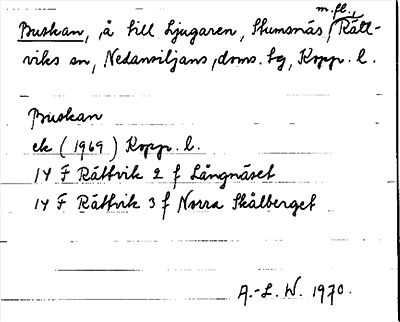 Buskan, å till Ljugaren, Skumsnäs m.fl., Rätt-
viks sn, Nedansiljans, doms. lg, Kopp. l.
Buskan
ek (1969) Kopp. l.
14 F Rättvik 2 f Långnäset
14 F Rättvik 3 f Norra Skålberget
A.-L. W. 1970.